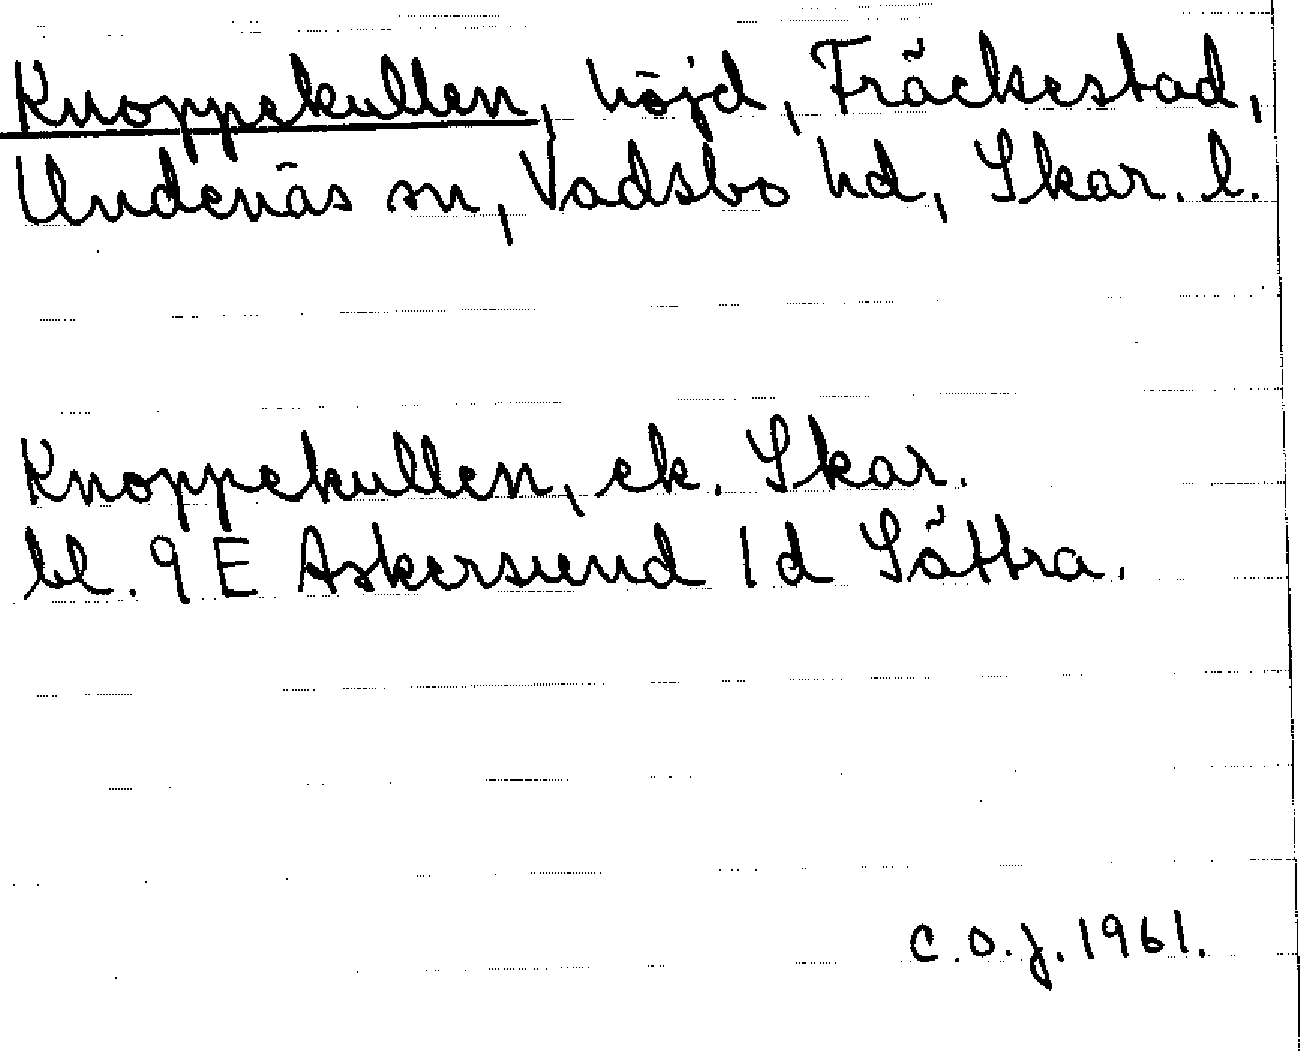 Knoppekullen, höjd, Fräckestad,
Undenäs sn, Vadsbo hd, Skar. l.
Knoppekullen, ek. Skar.
bl. 9 E Askersund 1 d Sättra.
C.O.J. 1961.